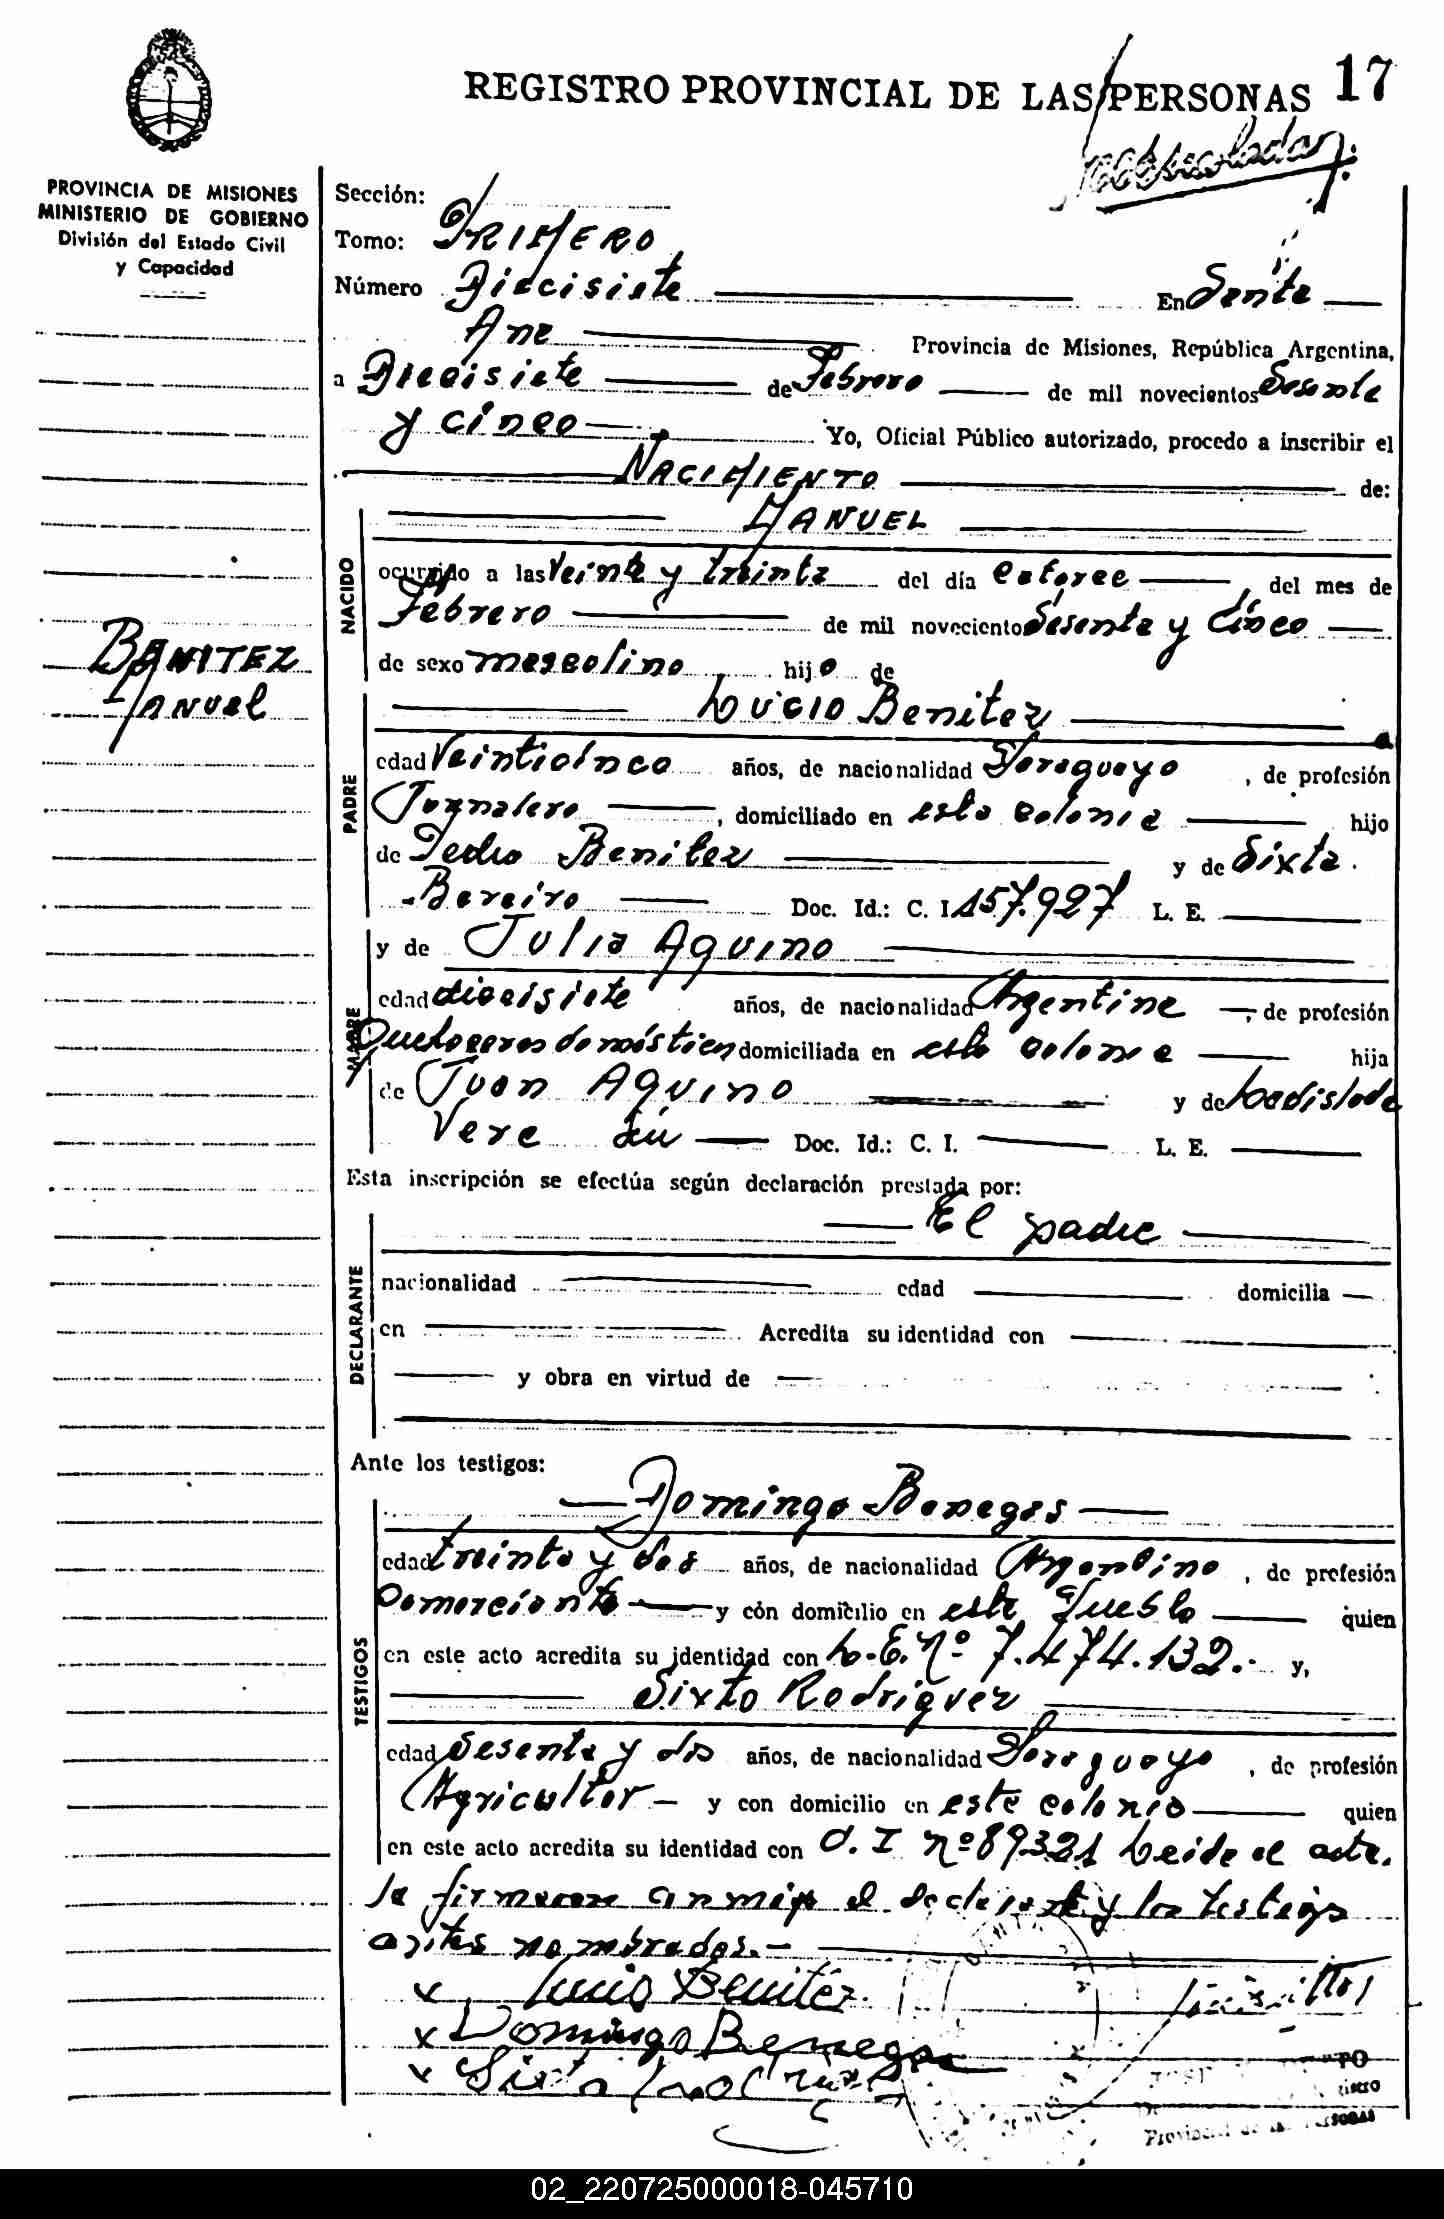 REGISTRO PROVINCIAL DE LAS PERSONAS 17
PROVINCIA DE MISIONES
MINISTERIO DE GOBIERNO
División del Estado Civil
y Capacidad
BENITEZ
Manuel
Sección:
Tomo: PRIMERO
Número Diecisiete En Santa
Ana Provincia de Misiones, República Argentina,
a Diecisiete de Febrero de mil novecientos Sesenta
y cinco Yo, Oficial Público autorizado, procedo a inscribir el
NACIMIENTO de:
MANUEL
NACIDO
ocurrido a las Veinte y treinta del día catorce , del mes de
Febrero de mil novecientos Sesenta y Cinco
de sexo masculino hijo de
PADRE
Lucio Benitez
edad Veinticinco años, de nacionalidad Paraguayo , de profesión
Jornalero , domiciliado en esta colonia hijo
de Pedro Benitez y de Sixta
Bareiro Doc. Id.: C. I. 157.927 L. E.
MADRE
y de Julia Aquino
edad diecisiete años, de nacionalidad Argentina , de profesión
Quehaceres domésticos domiciliada en esta colonia hija
de Juan Aquino y de Ladislada
Vera Doc. Id.: C. I. L. E.
Esta inscripción se efectúa según declaración prestada por:
DECLARANTE
El padre
nacionalidad edad domicilia
en Acredita su identidad con
y obra en virtud de
Ante los testigos:
TESTIGOS
Domingo Benegas
edad treinta y dos años, de nacionalidad Argentino , de profesión
Comerciante y con domicilio en este Pueblo quien
en este acto acredita su identidad con L.E. Nº 7.474.132.- y,
Sixto Rodriguez
edad Sesenta y dos años, de nacionalidad Paraguayo , de profesión
Agricultor y con domicilio en esta colonia quien
en este acto acredita su identidad con C. I nº 89321 Leida el acta,
la firmaron conmigo el declarante y los testigos
antes nombrados.-
x Lucio Benitez
x Domingo Benegas
x Sixto
02_220725000018-045710